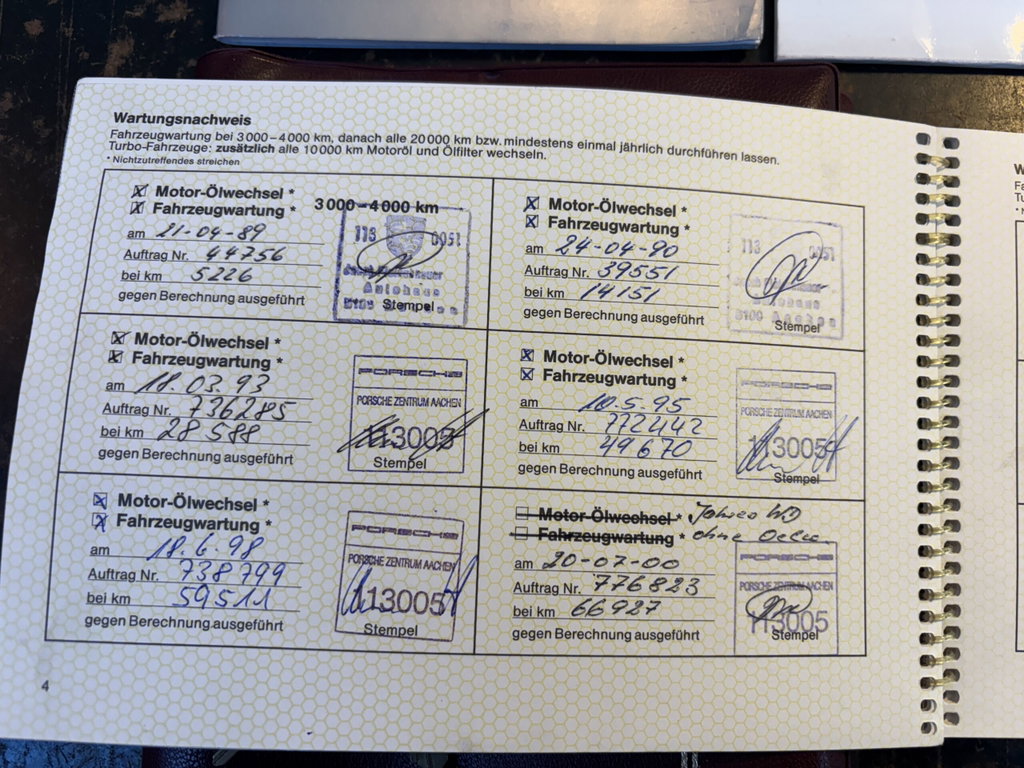 Wartungsnachweis
Fahrzeugwartung bei 3000–4000 km, danach alle 20000 km bzw. mindestens einmal jährlich durchführen lassen.
Turbo-Fahrzeuge: zusätzlich alle 10000 km Motoröl und Ölfilter wechseln.
* Nichtzutreffendes streichen
Motor-Ölwechsel *
Fahrzeugwartung * 3000–4000 km
am 21-04-89
Auftrag Nr. 44756
bei km 5226
gegen Berechnung ausgeführt
113 0051
Autohaus
Stempel
Motor-Ölwechsel *
Fahrzeugwartung *
am 24-04-90
Auftrag Nr. 39551
bei km 14151
gegen Berechnung ausgeführt
113 0051
5100 Aachen
Stempel
Motor-Ölwechsel *
Fahrzeugwartung *
am 18.03.93
Auftrag Nr. 736285
bei km 28588
gegen Berechnung ausgeführt
PORSCHE
PORSCHE ZENTRUM AACHEN
113005
Stempel
Motor-Ölwechsel *
Fahrzeugwartung *
am 10.5.95
Auftrag Nr. 772442
bei km 49670
gegen Berechnung ausgeführt
PORSCHE
PORSCHE ZENTRUM AACHEN
113005
Stempel
Motor-Ölwechsel *
Fahrzeugwartung *
am 18.6.98
Auftrag Nr. 738799
bei km 59511
gegen Berechnung ausgeführt
PORSCHE
PORSCHE ZENTRUM AACHEN
113005
Stempel
Motor-Ölwechsel * Jahres WD
Fahrzeugwartung * ohne
am 20-07-00
Auftrag Nr. 776823
bei km 66927
gegen Berechnung ausgeführt
PORSCHE
PORSCHE ZENTRUM AACHEN
113005
Stempel
4